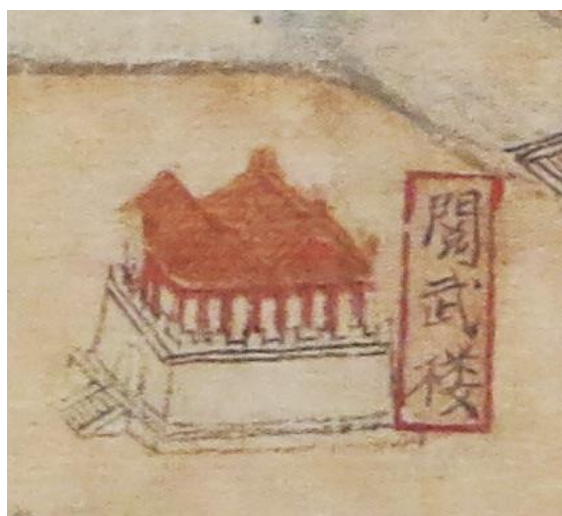 閱武楼